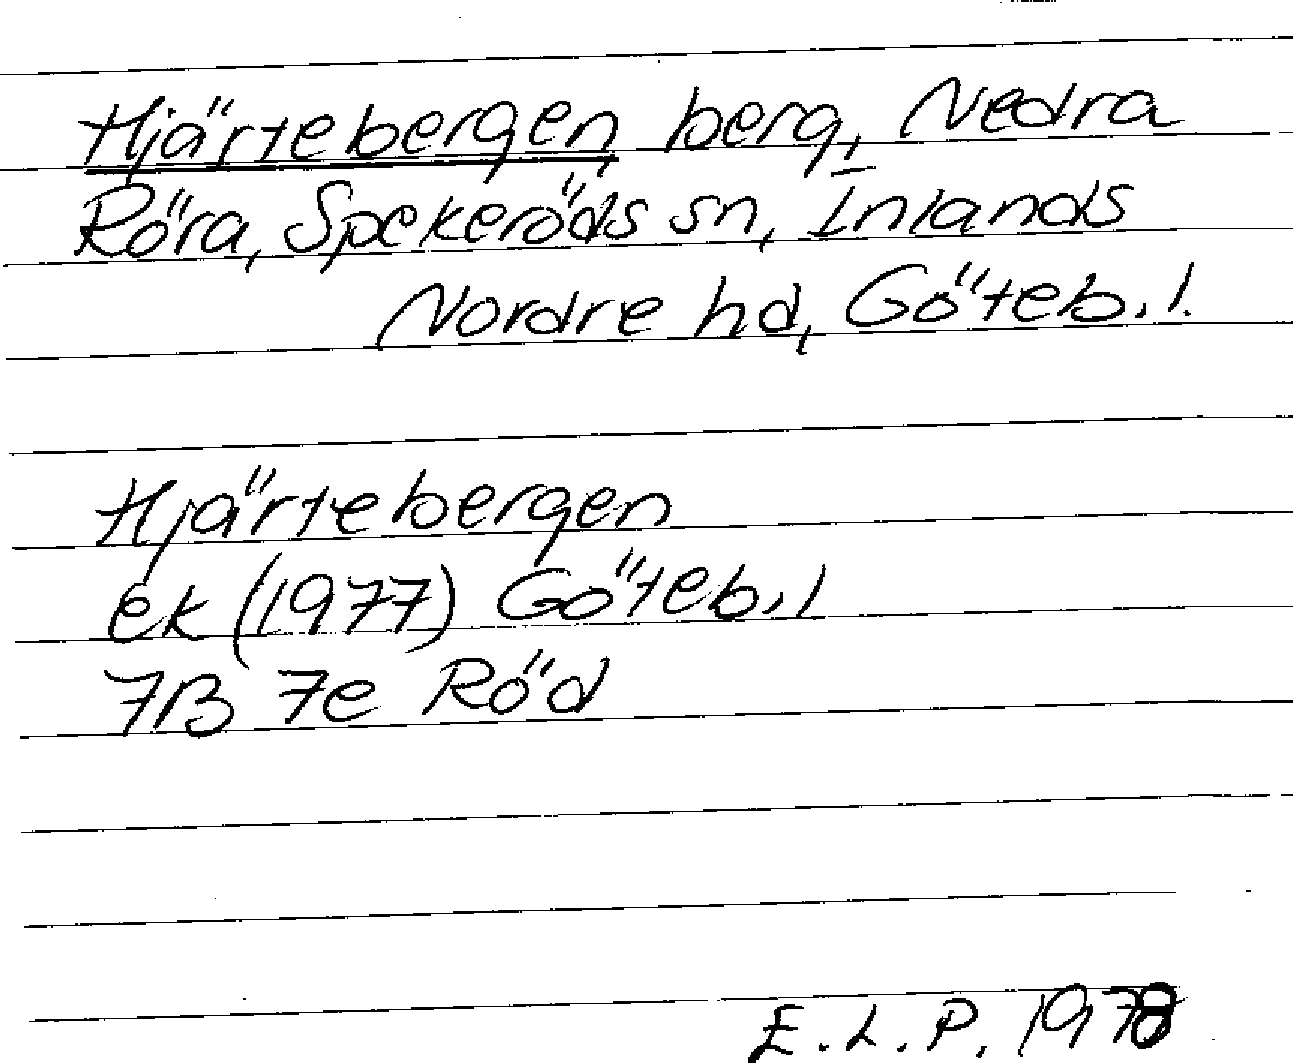 Hjärtebergen berg, Nedra
Röra, Spekeröds sn, Inlands
Nordre hd, Göteb.l.
Hjärtebergen
ek (1977) Göteb.l
7B 7e Röd
E.L.P. 1978